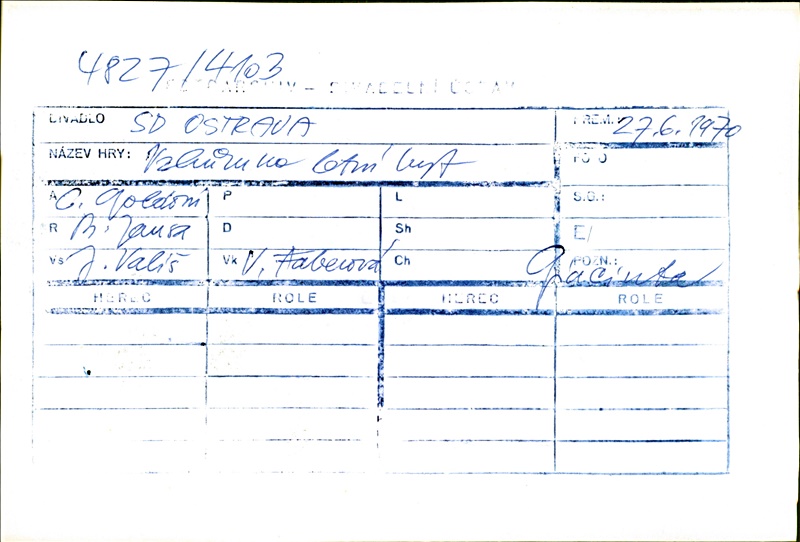 4827/4103
FOTOARCHIV - DIVADELNÍ ÚSTAV
DIVADLO SD OSTRAVA PREM.: 27.6.1970
NÁZEV HRY: na letní byt FOTO
A C. Goldoni P L S.G.:
R R. Jansa D Sh E/
Vs J. Vališ Vk V. Faberová Ch POZN.: Giacinta
HEREC ROLE HEREC ROLE